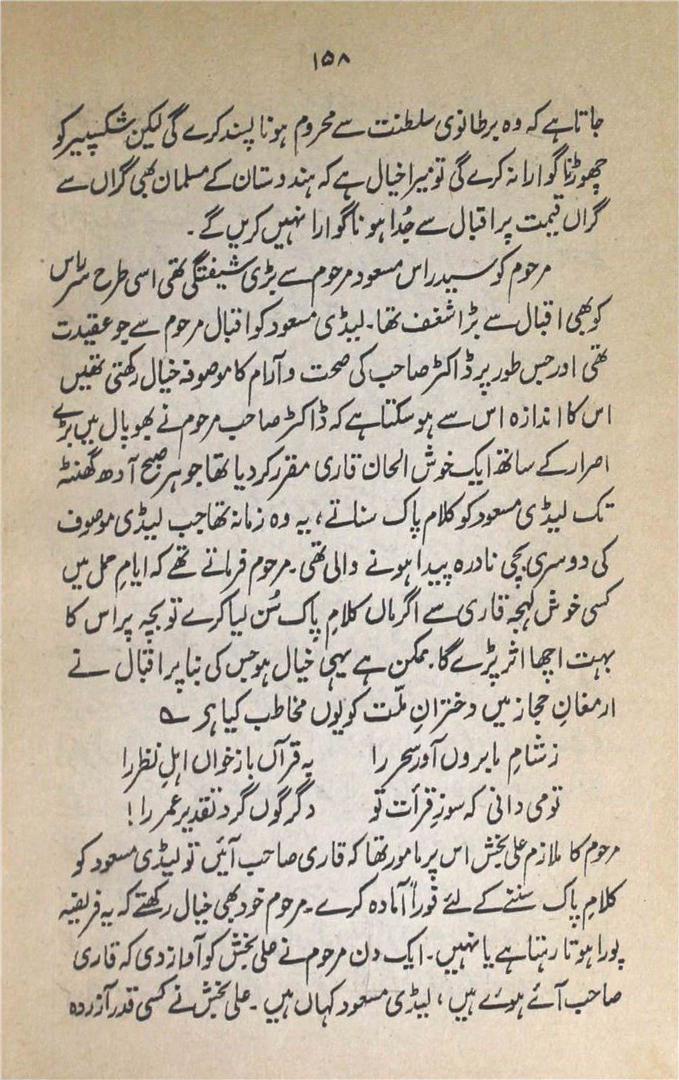 ۱۵۸
جاتا ہے کہ وہ برطانوی سلطنت سے محروم ہونا پسند کرے گی لیکن شکسپیر کو
چھوڑنا گوارا نہ کرے گی تو میرا خیال ہے کہ ہندوستان کے مسلمان بھی گراں سے
گراں قیمت پر اقبال سے جُدا ہونا گوارا نہیں کریں گے۔
مرحوم کو سید راس مسعود مرحوم سے بڑی شیفتگی تھی اسی طرح سر راس
کو بھی اقبال سے بڑا شغف تھا۔ لیڈی مسعود کو اقبال مرحوم سے جو عقیدت
تھی اور جس طور پر ڈاکٹر صاحب کی صحت و آرام کا موصوفہ خیال رکھتی تھیں
اس کا اندازہ اس سے ہو سکتا ہے کہ ڈاکٹر صاحب مرحوم نے بھوپال میں بڑے
اصرار کے ساتھ ایک خوش الحان قاری مقرر کر دیا تھا جو ہر صبح آدھ گھنٹہ
تک لیڈی مسعود کو کلام پاک سناتے، یہ وہ زمانہ تھا جب لیڈی موصوف
کی دوسری بچی نادرہ پیدا ہونے والی تھی۔ مرحوم فرماتے تھے کہ ایامِ حمل میں
کسی خوش لہجہ قاری سے اگر ماں کلامِ پاک سُن لیا کرے تو بچہ پر اس کا
بہت اچھا اثر پڑے گا۔ ممکن ہے یہی خیال ہو جس کی بنا پر اقبال نے
ارمغانِ حجاز میں دخترانِ ملّت کو یوں مخاطب کیا ہے ؎
زشامِ ما بروں آور سحر را        بہ قرآں باز خواں اہلِ نظر را
تو می دانی کہ سوزِ قرأت تو        دگرگوں کرد تقدیر عمر را!
مرحوم کا ملازم علی بخش اس پر مامور تھا کہ قاری صاحب آئیں تو لیڈی مسعود کو
کلامِ پاک سننے کے لئے فوراً آمادہ کرے۔ مرحوم خود بھی خیال رکھتے کہ یہ فریضہ
پورا ہوتا رہتا ہے یا نہیں۔ ایک دن مرحوم نے علی بخش کو آواز دی کہ قاری
صاحب آئے ہوئے ہیں، لیڈی مسعود کہاں ہیں۔ علی بخش نے کسی قدر آزردہ